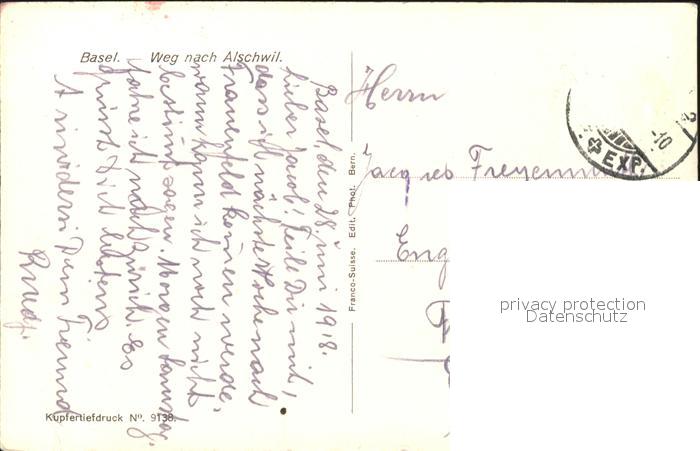 Basel. Weg nach Alschwil.
Basel, den 28. Juni 1918.
Lieber Jacob! Teile Dir mit,
dass ich nächste Woche nach
Frauenfeld komen werde.
wann kann ich noch nicht
bestimt sagen. Morgen Samstag.
fahre ich nach Zürich. Es
grüsst Dich bestens
Dein Freund
Herrn
Jacques
Eng
Franco-Suisse. Edit. Phot. Bern.
EXP.
-10
2
Kupfertiefdruck Nº. 9138.
privacy protection
Datenschutz